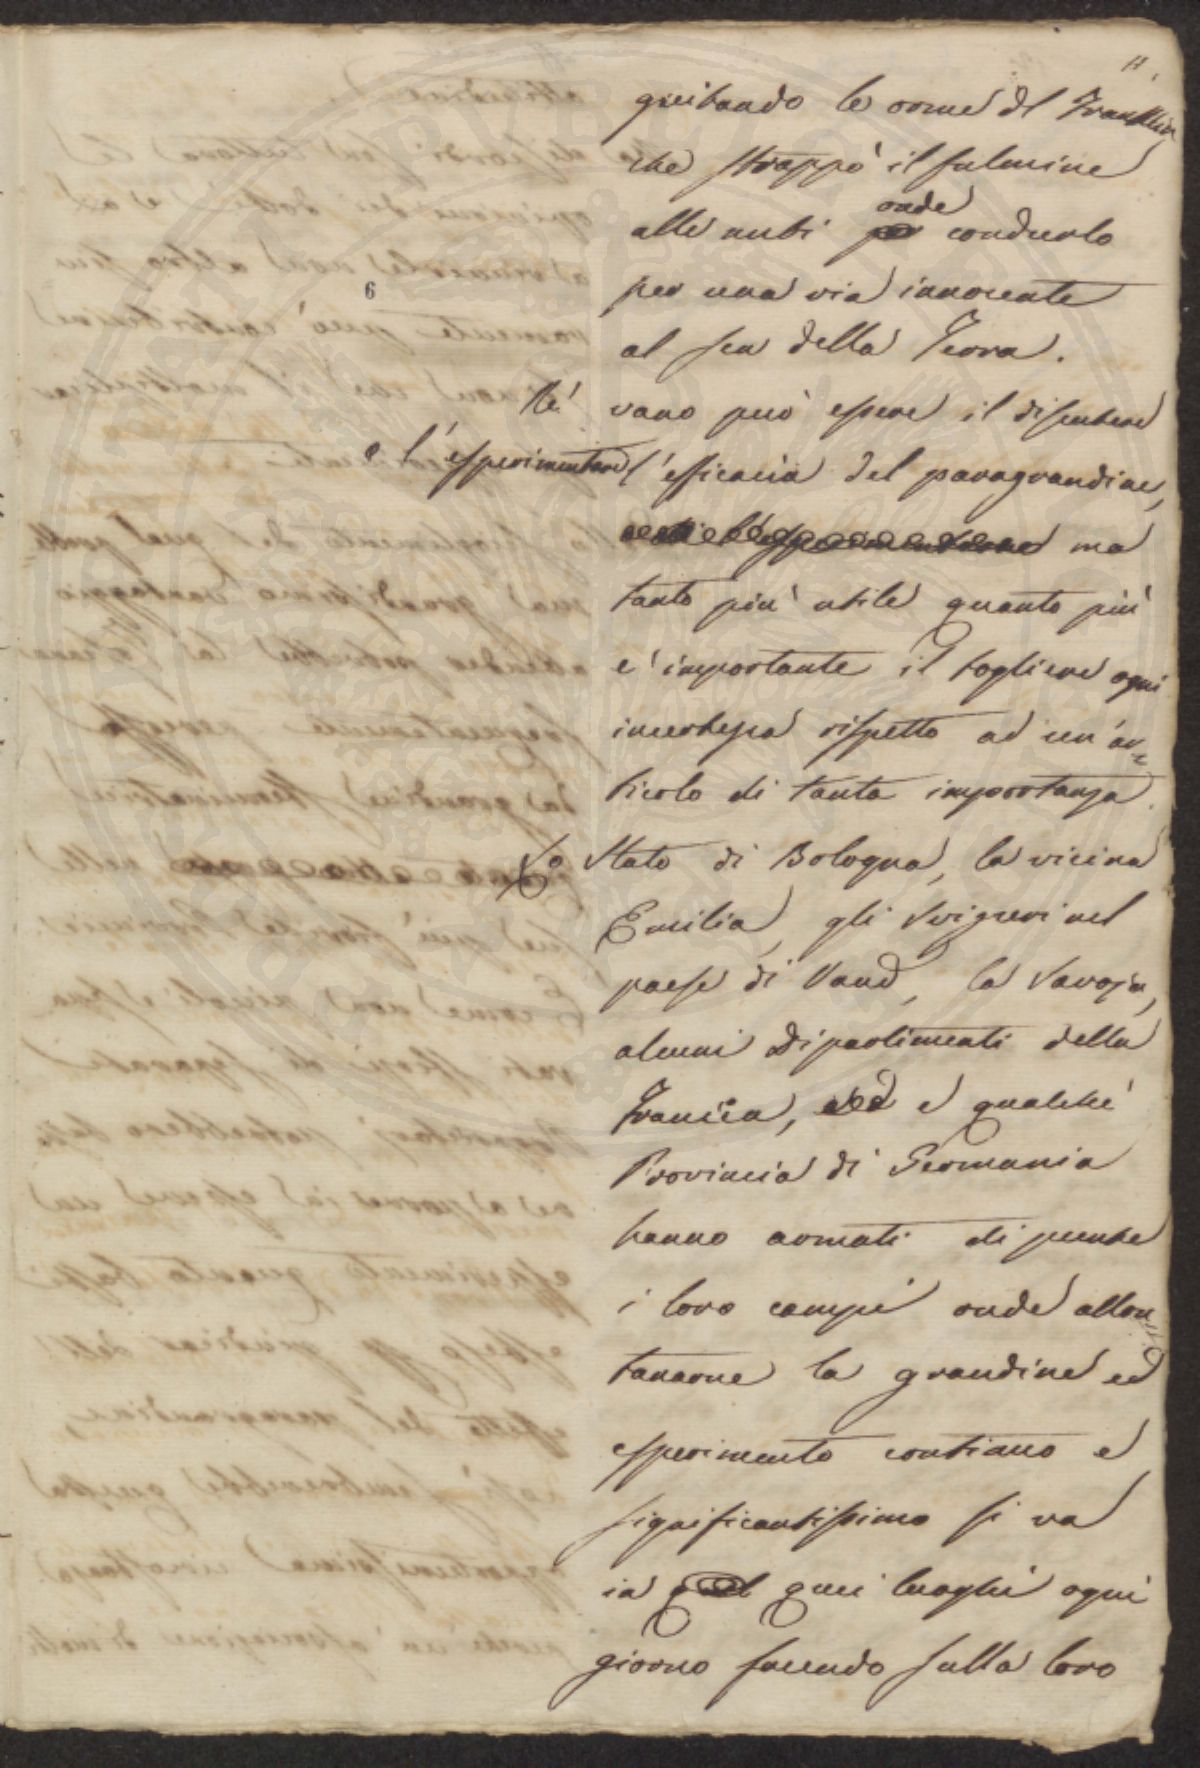 11.
guitando le orme del Franklin
che strappò il fulmine
alle nubi onde condurlo
per una via innocente
al sen della Terra.
6
Nè vano può essere il discutere
e l'esperimentare l'efficacia del paragrandine,
ma
tanto più utile quanto più
e' importante il togliere ogni
incertezza rispetto ad un'ar=
ticolo di tanta importanza.
Lo Stato di Bologna, la vicina
Emilia, gli Svizzeri nel
paese di Vaud, la Savoja,
alcuni Dipartimenti della
Francia, e qualche
Provincia di Germania
hanno armati di punte
i loro campi onde allon=
tanarne la grandine ed
esperimento continuo e
significantissimo si va
in quei luoghi ogni
giorno facendo sulla loro